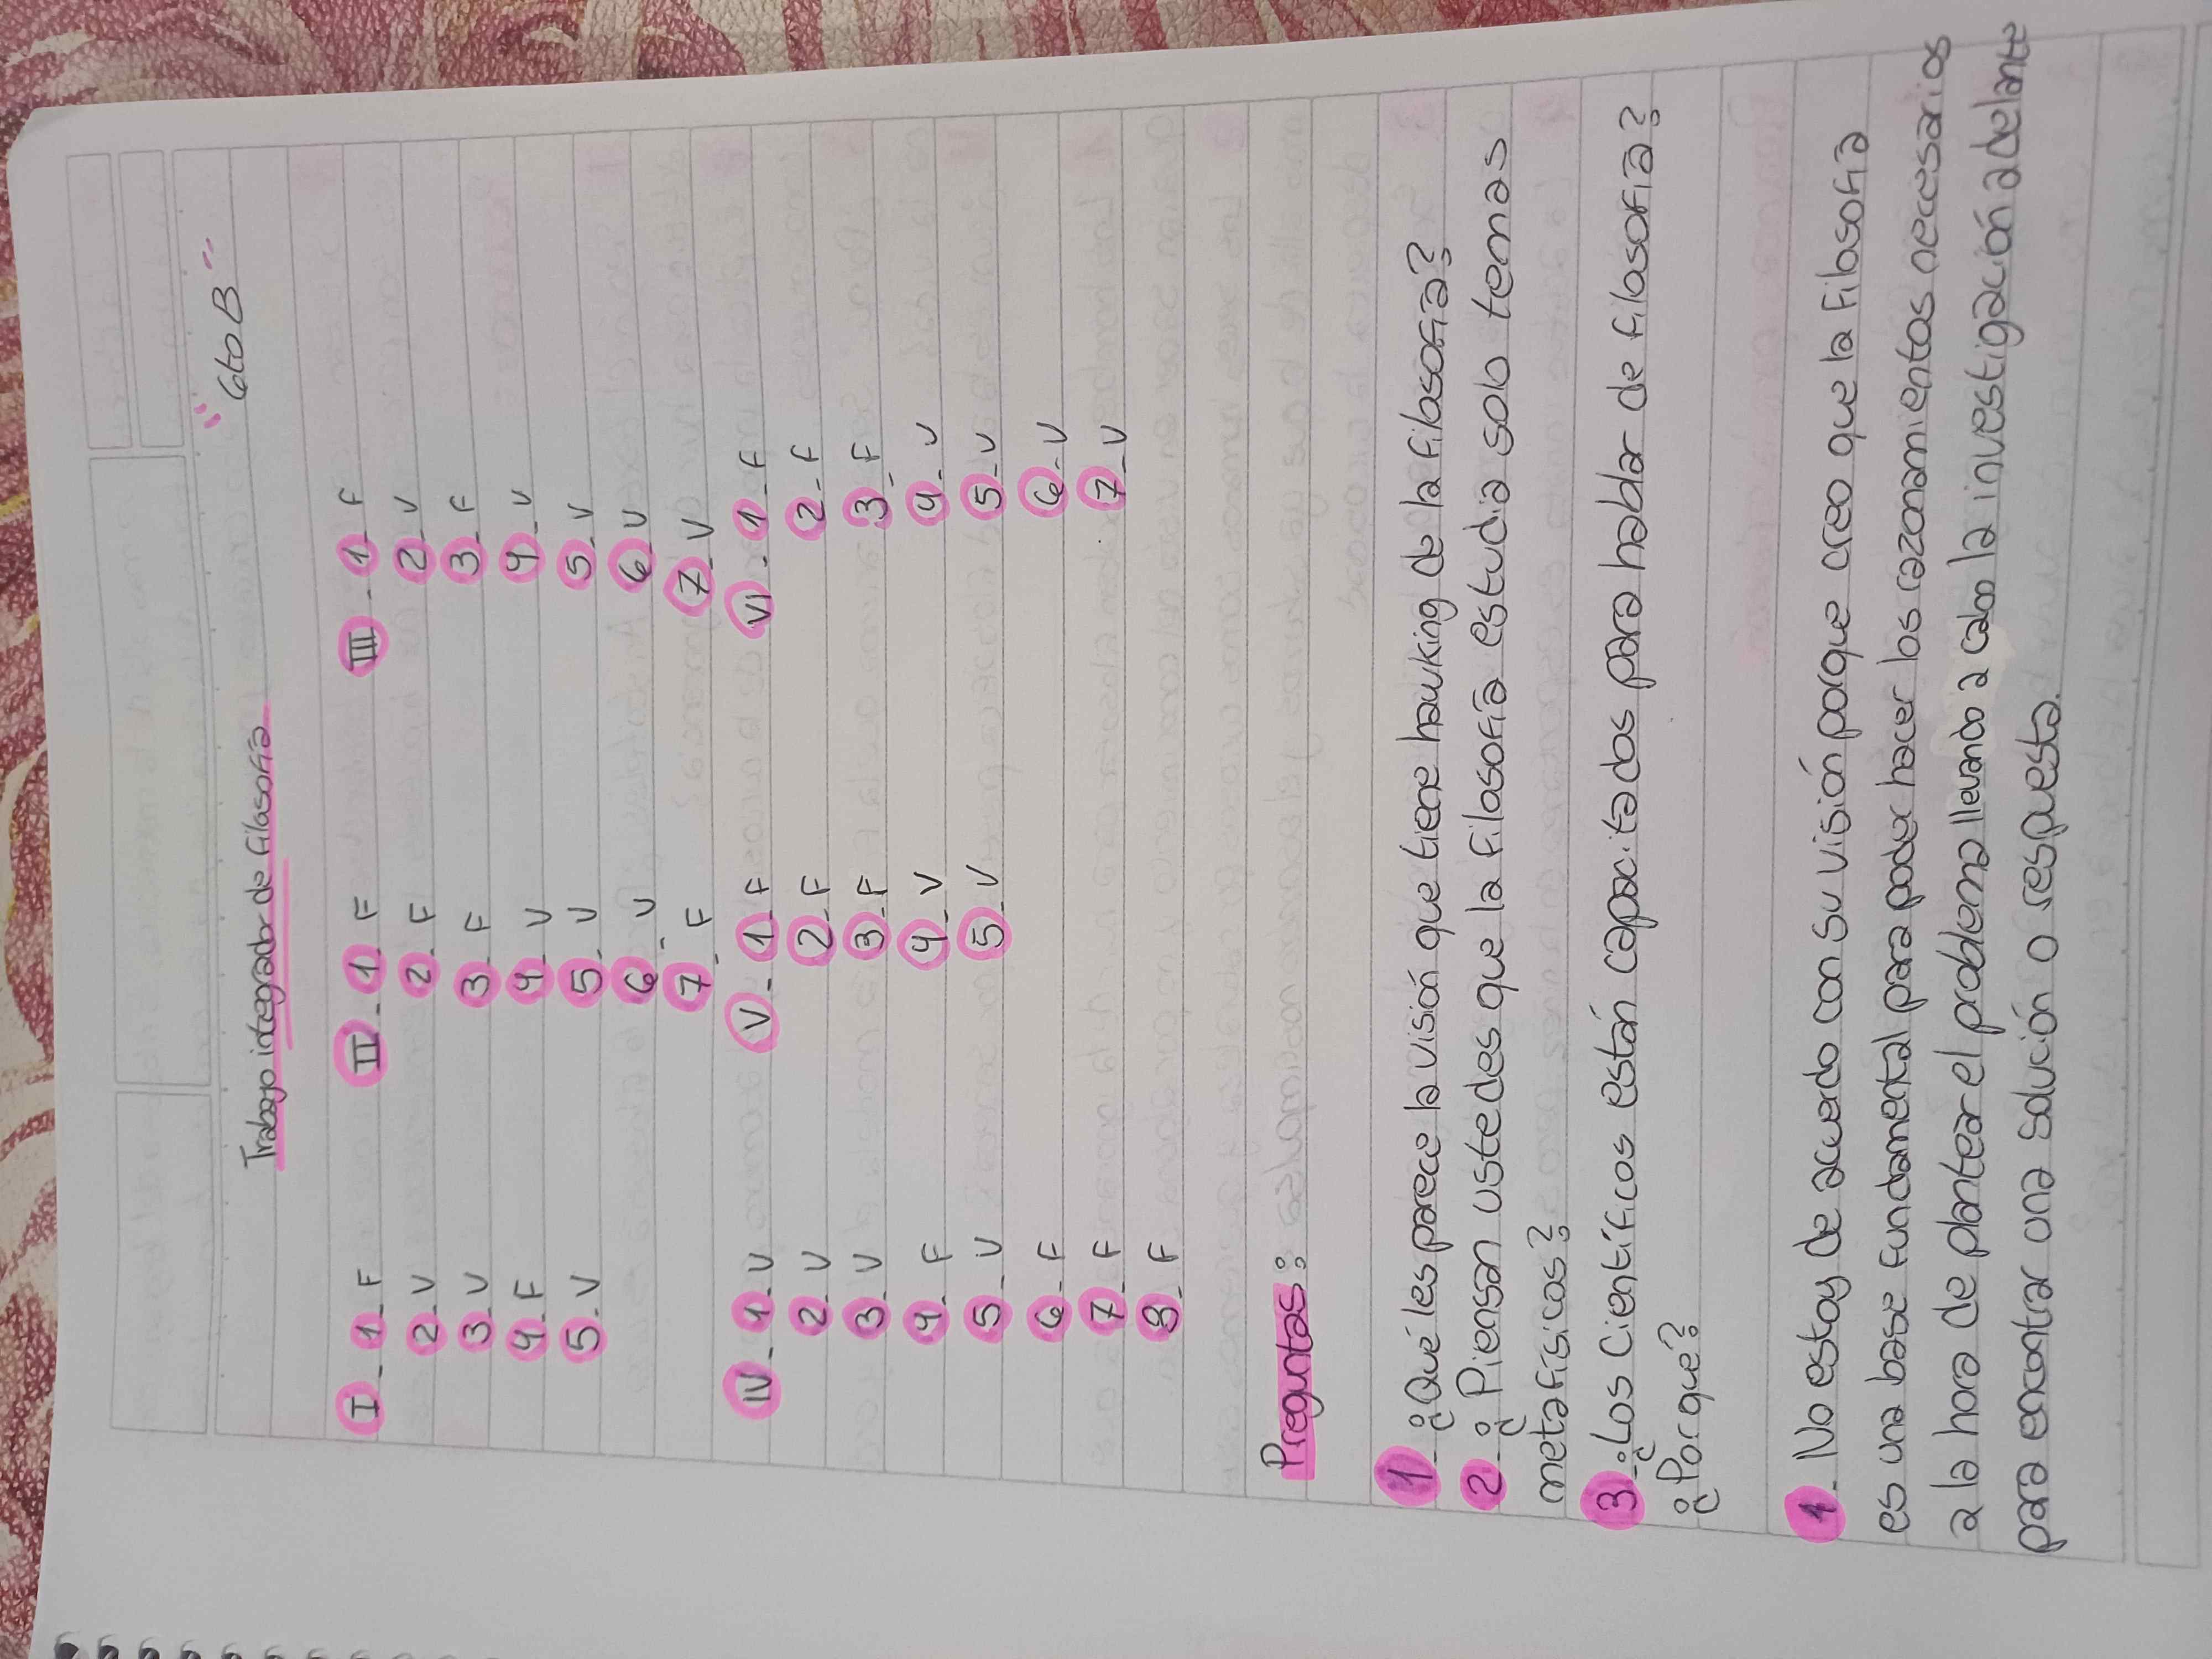 "6to B"
Trabajo integrador de Filosofía
I - 1 - F
2 - V
3 - V
4 - F
5 - V
II - 1 - F
2 - F
3 - F
4 - V
5 - V
6 - V
7 - F
III - 1 - F
2 - V
3 - F
4 - V
5 - V
6 - V
7 - V
IV - 1 - V
2 - V
3 - V
4 - F
5 - V
6 - F
7 - F
8 - F
V - 1 - F
2 - F
3 - F
4 - V
5 - V
VI - 1 - F
2 - F
3 - F
4 - V
5 - V
6 - V
7 - V
Preguntas:
1 - ¿Qué les parece la visión que tiene hawking de la filosofía?
2 - ¿Piensan ustedes que la filosofía estudia solo temas
metafísicos?
3 - ¿Los científicos están capacitados para hablar de filosofía?
¿Porqué?
1 - No estoy de acuerdo con su visión porque creo que la filosofía
es una base fundamental para poder hacer los razonamientos necesarios
a la hora de plantear el problema llevando a cabo la investigación adelante
para encontrar una solución o respuesta.